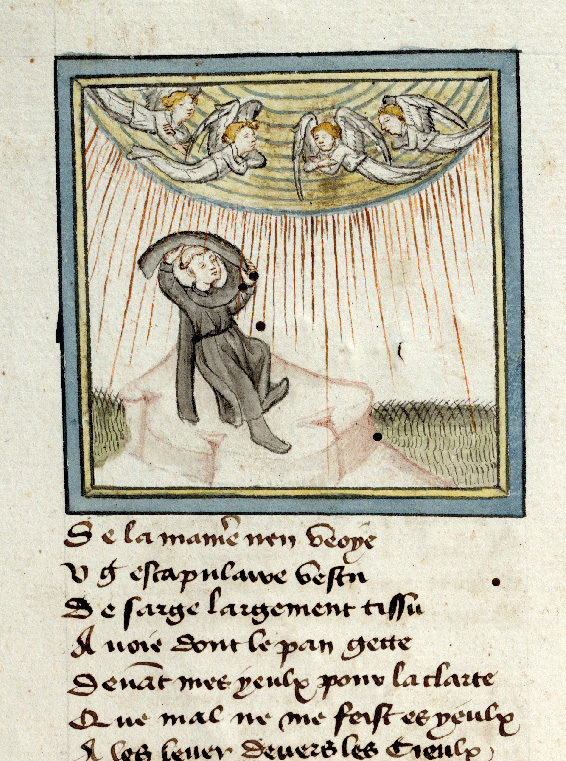 Se la maniẽe nen veoye
Vg̃ escapulaire vestu
De sarge largement tissu
Auoie dont le pan gette
Deuãt mes yeulx pour la clarte
Que mal ne me feist es yeulx
A les leuer deuers les Cieulx